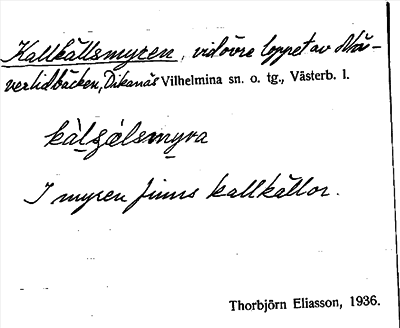 Kallkällsmyren, vid övre loppet av Nå-
verlidbäcken, Dikanäs Vilhelmina sn. o. tg., Västerb. l.
kàlçälsmyra
I myren finns kallkällor.
Thorbjörn Eliasson, 1936.